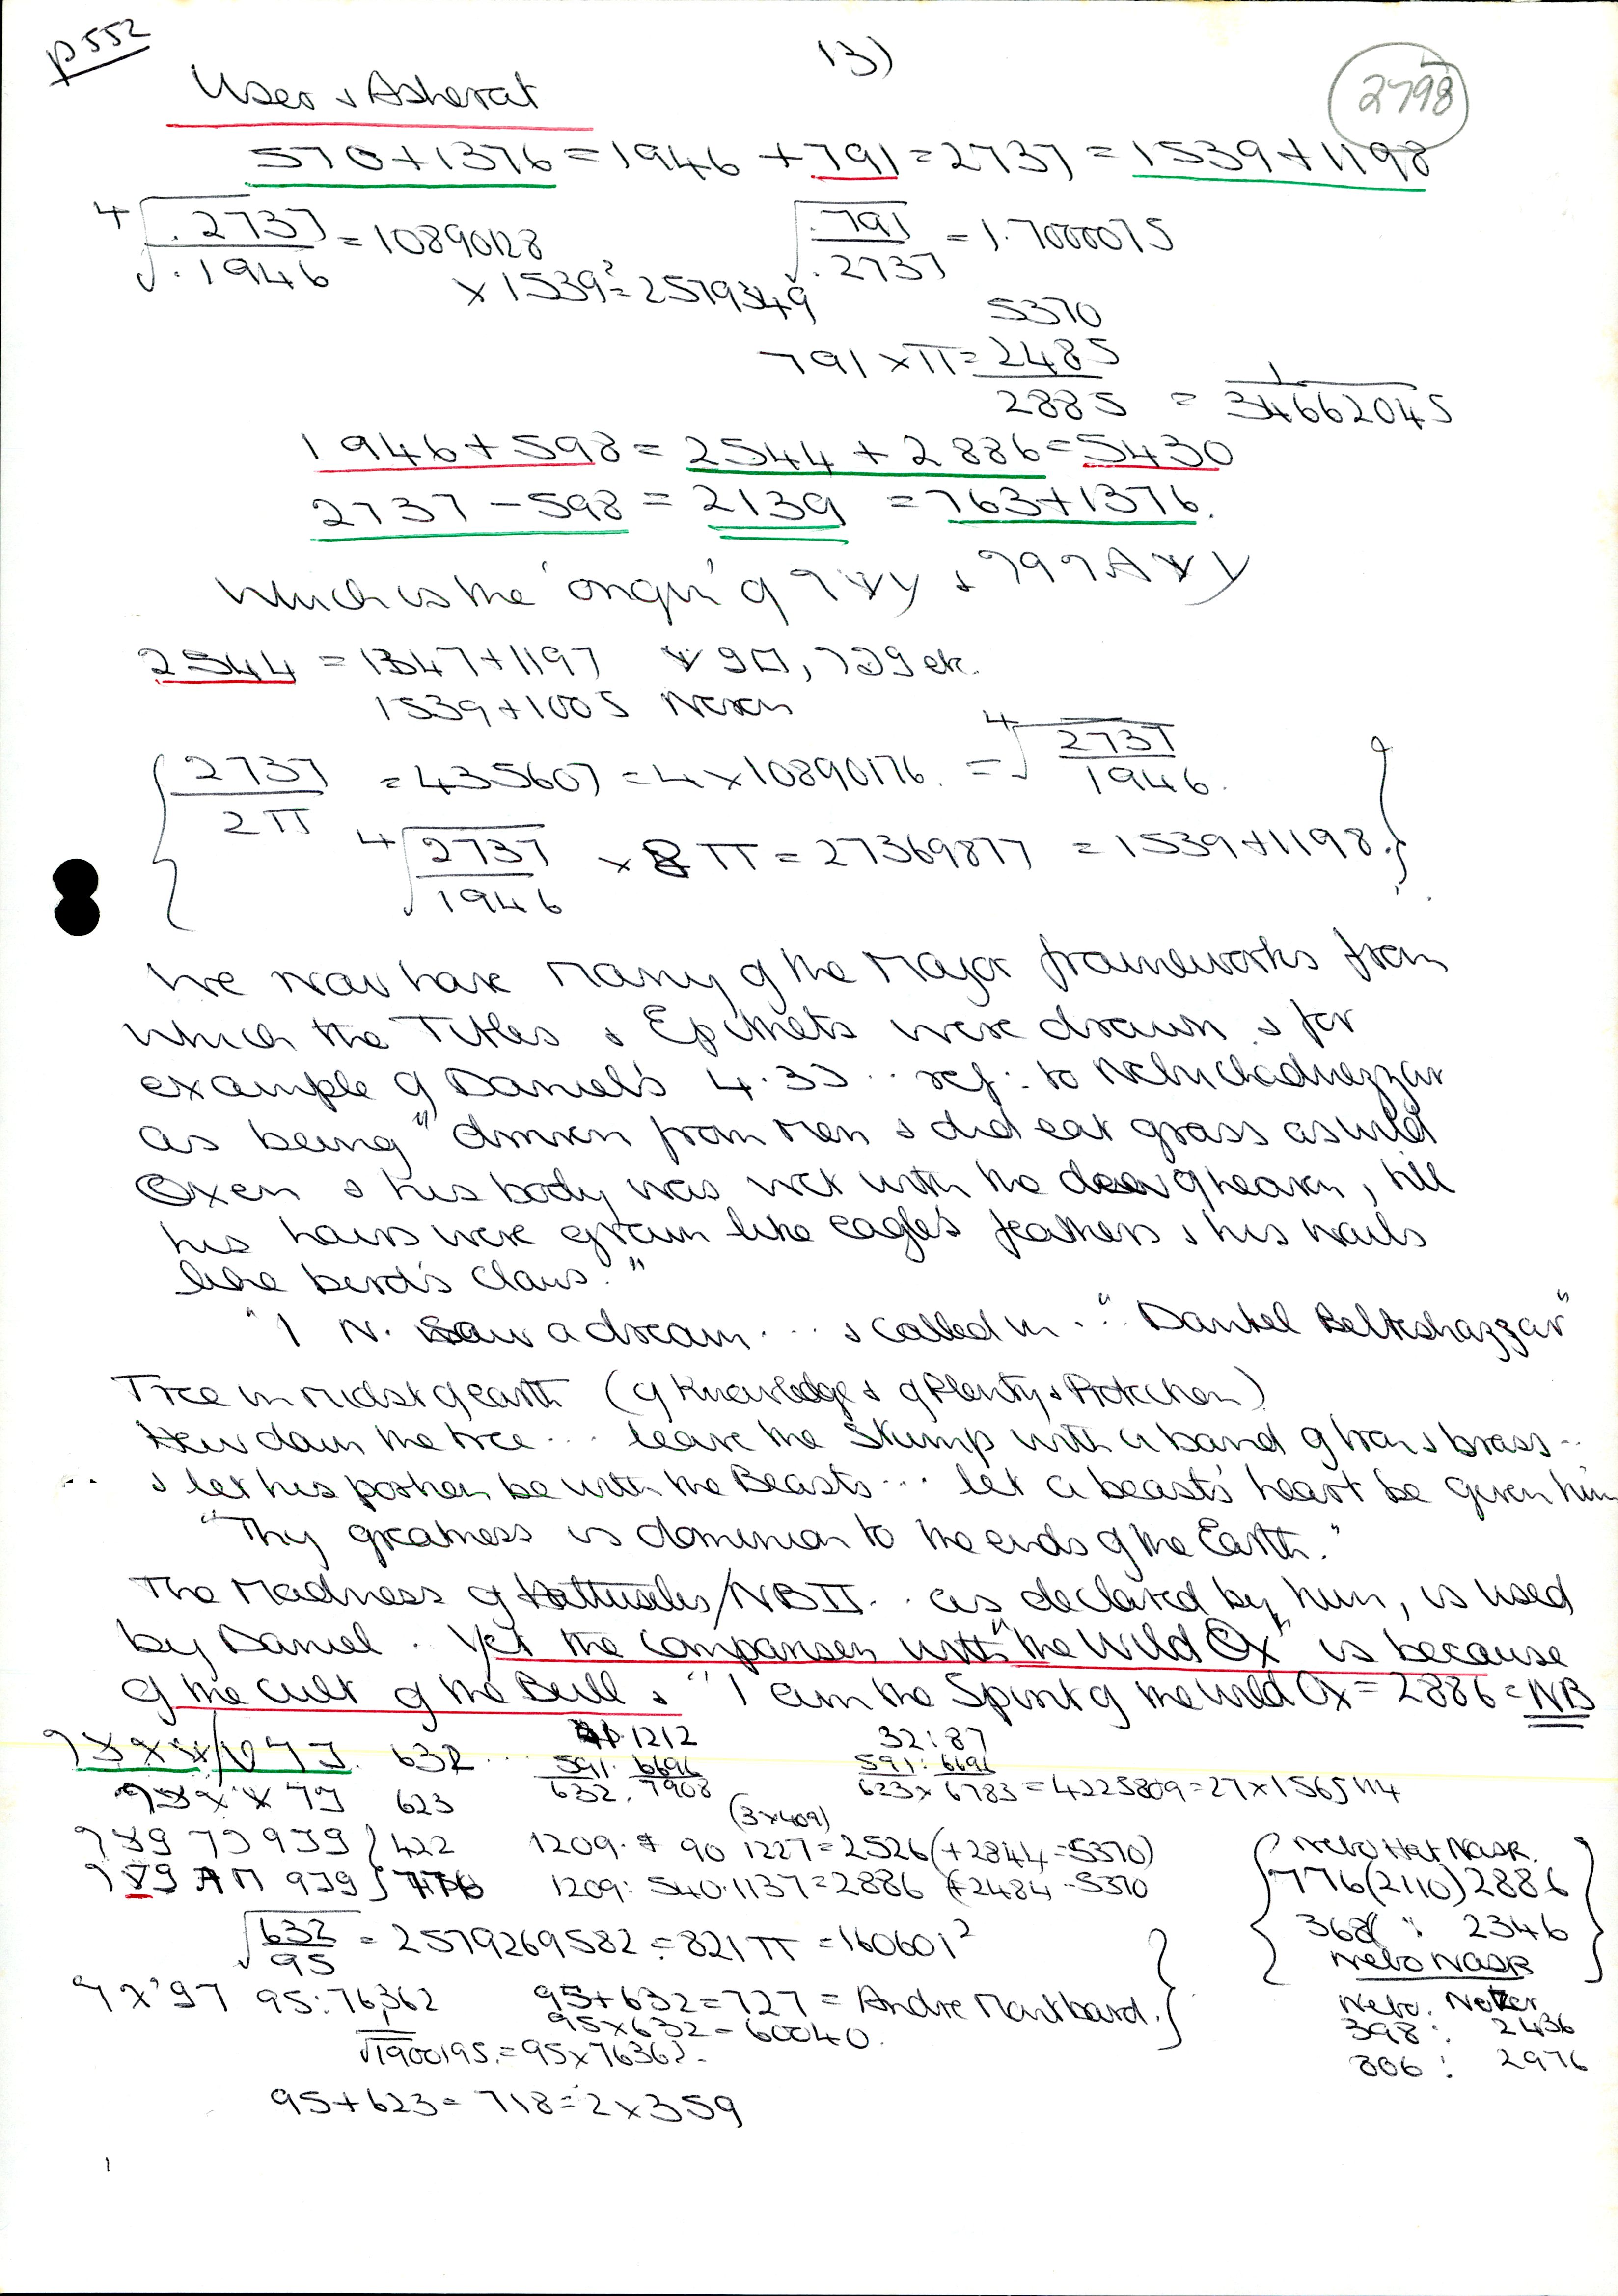 p 552
13)
2798
User & Asherat
570+1376 = 1946 + 791 = 2737 = 1539+1198
4√.2737/.1946 = 10890128
×1539² = 2579349
√.791/.2737 = 1.7000075
5370
791 × π = 2485
2885 = 1/34662045
1946+598 = 2544 + 2886 = 5430
2737 - 598 = 2139 = 763+1376.
Which is the 'origin' of
2544 = 1347+1197 etc.
1539+1005
2737/2π = 435607 = 4×10890176. = 4√2737/1946.
4√2737/1946 × 8π = 27369877 = 1539+1198.
We now have many of the Major frameworks from
which the Titles & Epithets were drawn & for
example of Daniel's 4.33.. ref: to Nebuchadnezzar
as being "driven from Men & did eat grass as wild
Oxen & his body was wet with the dew of heaven, till
his hairs were grown like eagle's feathers & his nails
like bird's claws."
"I N. saw a dream... & called in.." Daniel Belteshazzar"
Tree in midst of earth (of Knowledge & of Plenty & Protection)
Hew down the tree... leave the Stump with a band of Iron & brass..
.. & let his portion be with the Beasts... let a beast's heart be given him
"Thy greatness is dominion to the ends of the Earth."
The Madness of Hattusilis/NBII.. as declared by him, is used
by Daniel. Yet the comparison with "the Wild Ox" is because
of the cult of the Bull & "I am the Spirit of the Wild Ox = 2886 = NB
632 ... 1212
591. 6696
632. 7908
32:87
591: 6696
623 × 6783 = 4225809 = 27×1565114
623
(3×409)
422 1209. 90 1227 = 2526 (+2844 = 5370)
776 1209: 540.1137 = 2886 (+2484 = 5370
Nebo Hat Nasr.
776(2110)2886
368 : 2346
Nebo Nasr
√632/95 = 2579269582 = 821π = 160601²
95:76,362 95+632 = 727 = Andre Markbard.
95×632 = 60040.
1/√1900195. = 95×76362.
Nebo. Netzer
398: 2436
806: 2976
95+623 = 718 = 2×359